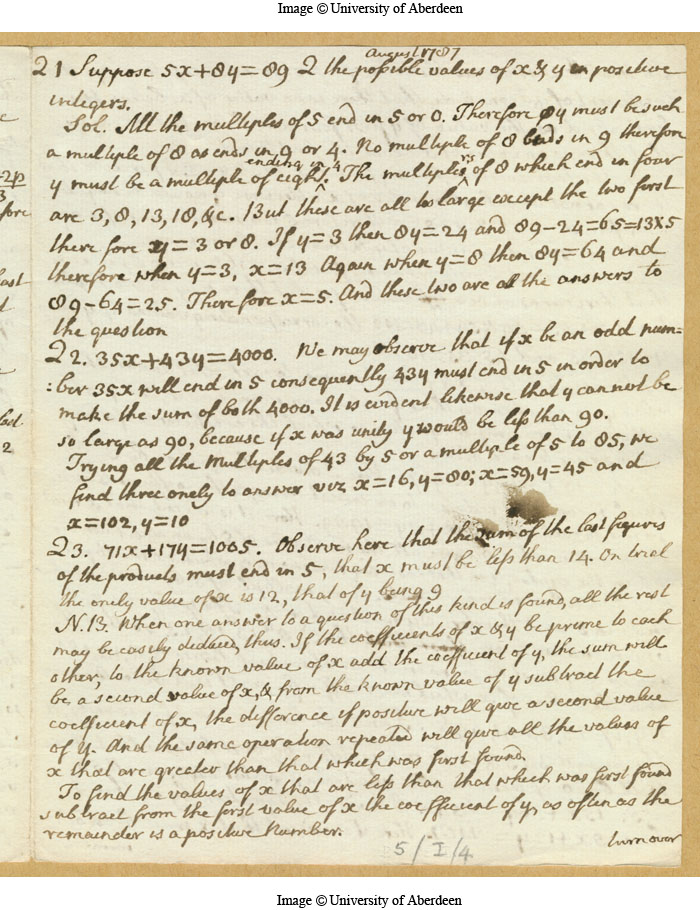 Image © University of Aberdeen
August 1787
Q 1 Suppose 5x+8y=89 Q the possible values of x & y in positive
integers.
Sol. All the multiples of 5 end in 5 or 0. Therefore 8y must be such
a multiple of 8 as ends in 9 or 4. No multiple of 8 ends in 9 therefore
y must be a multiple of eight ending in 4. The multiples of 8 which end in four
are 3, 8, 13, 18, &c. But these are all to large except the two first
there fore y = 3 or 8. If y=3 then 8y=24 and 89-24=65=13x5
therefore when y=3, x=13 Again when y=8 then 8y=64 and
89-64=25. Therefore x=5. And these two are all the answers to
the question
Q 2. 35x+43y=4000. We may observe that if x be an odd num=
:ber 35x will end in 5 consequently 43y must end in 5 in order to
make the sum of both 4000. It is evident likewise that y cannot be
so large as 90, because if x was unity y would be less than 90.
Trying all the Multiples of 43 by 5 or a multiple of 5 to 85, we
find three onely to answer viz x=16, y=80; x=59, y=45 and
x=102, y=10
Q 3. 71x+17y=1005. Observe here that the sum of the last figures
of the products must end in 5, that x must be less than 14. On trial
the onely value of x is 12, that of y being 9
N.B. When one answer to a question of this kind is found, all the rest
may be easily deduced, thus. If the coefficients of x & y be prime to each
other, to the known value of x add the coefficient of y, the sum will
be a second value of x, & from the known value of y subtract the
coefficient of x, the difference if positive will give a second value
of y. And the same operation repeated will give all the values of
x that are greater than that which was first found.
To find the values of x that are less than that which was first found
subtract from the first value of x the coefficient of y, as often as the
remainder is a positive number.
turn over
5/I/4
Image © University of Aberdeen